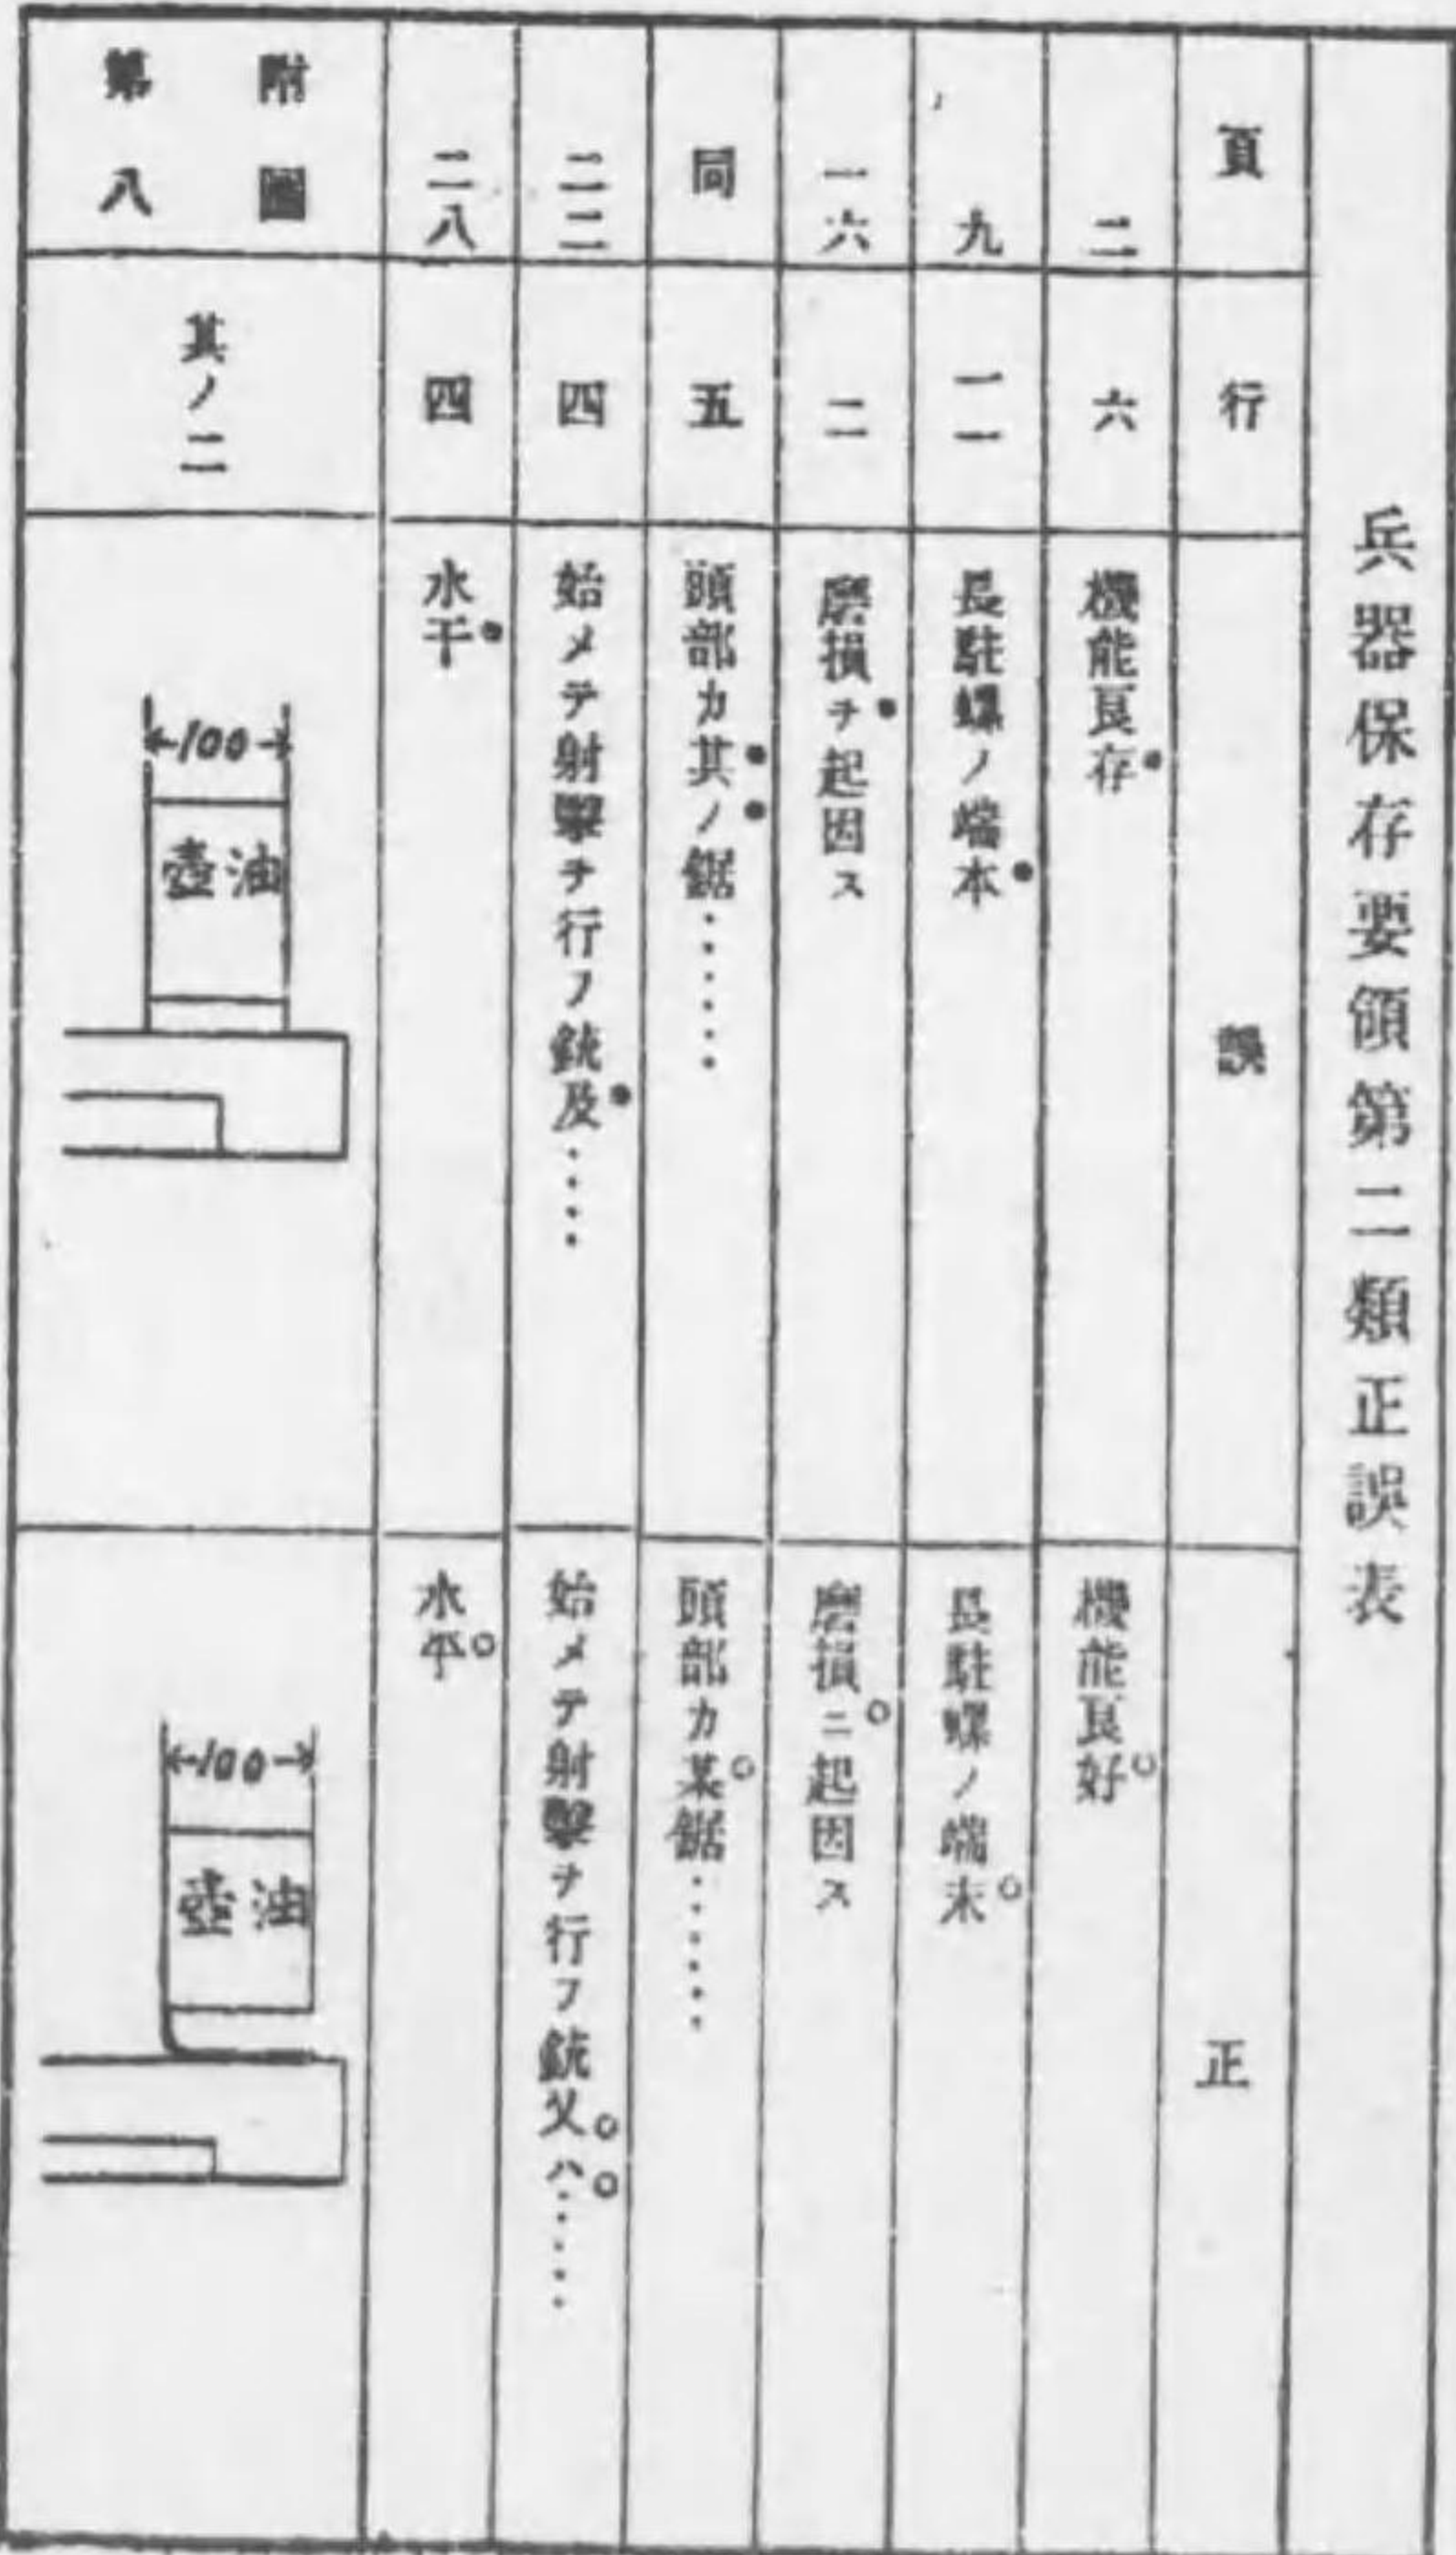 兵器保存要領第二類正誤表
頁
行
誤
正
二
六
機能良存
機能良好
九
一一
長駐螺ノ端本
長駐螺ノ端末
一六
二
磨損ヲ起因ス
磨損ニ起因ス
同
五
頭部カ其ノ鋸・・・・・・
頭部カ某鋸・・・・・・
二二
四
始メテ射擊ヲ行フ銃及・・・・
始メテ射擊ヲ行フ銃又ハ・・・・・
二八
四
水干
水平
附圖
第八
其ノ二
100
油壺
100
油壺